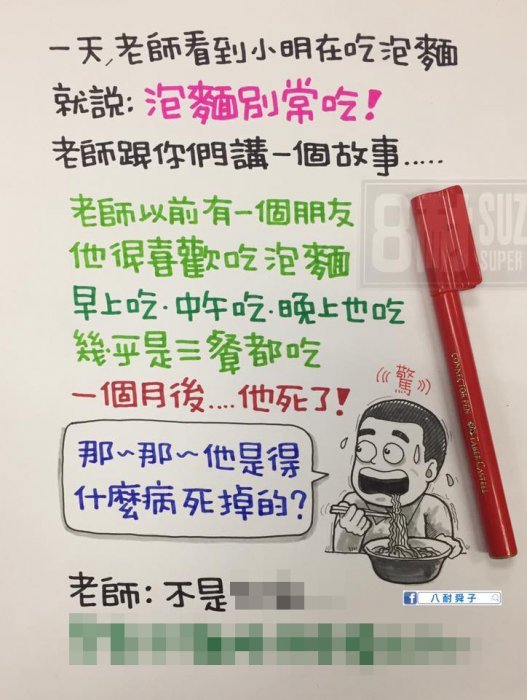 一天,老師看到小明在吃泡麵
就說:泡麵別常吃!
老師跟你們講一個故事.....
老師以前有一個朋友
他很喜歡吃泡麵
早上吃.中午吃.晚上也吃
幾乎是三餐都吃
一個月後....他死了!
驚
那~那~他是得
什麼病死掉的?
老師:不是
八耐舜子
SUZ
SUPER
CONNECTOR PEN FABER-CASTELL